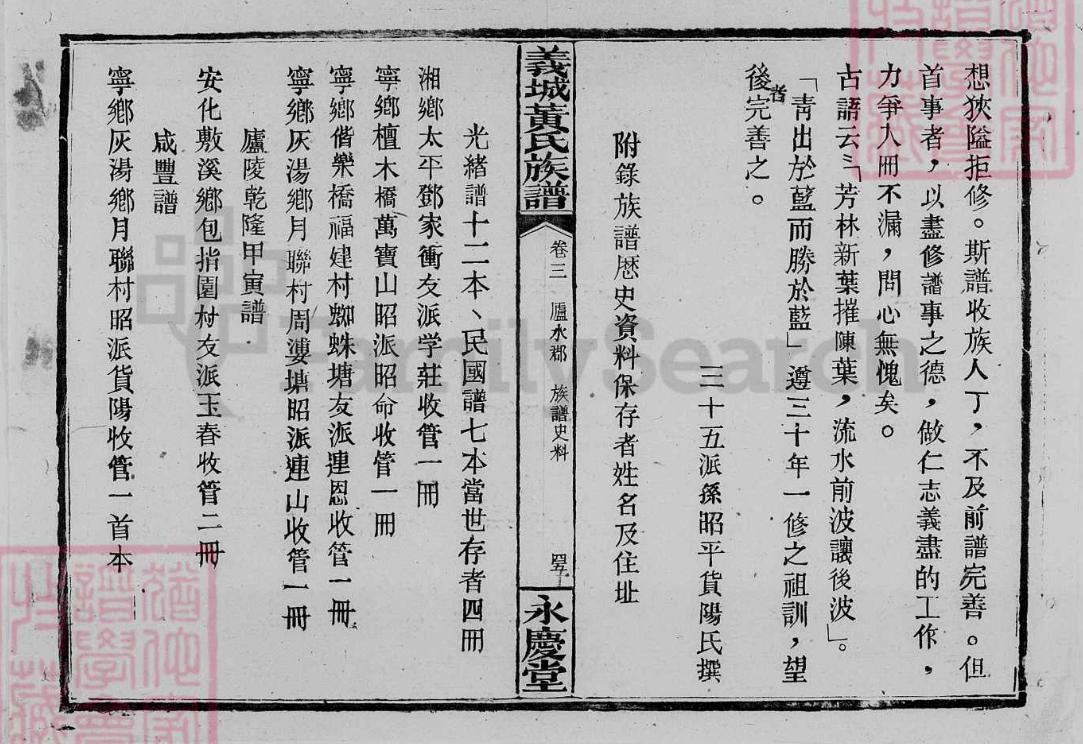 想狹隘拒修。斯譜收族人丁，不及前譜完善。但
首事者，以盡修譜事之德，做仁志義盡的工作，
力爭入冊不漏，問心無愧矣。
古語云：「芳林新葉摧陳葉，流水前波讓後波」。
「青出於藍而勝於藍」遵三十年一修之祖訓，望
後者完善之。
三十五派孫昭平貨陽氏撰
附錄族譜歷史資料保存者姓名及住址
義城黃氏族譜
卷三
廬水郡
族譜史料
永慶堂
光緒譜十二本、民國譜七本當世存者四冊
湘鄉太平鄧家衝友派学莊收管一冊
寧鄉檀木橋萬寶山昭派昭命收管一冊
寧鄉偕樂橋福建村蜘蛛塘友派連恩收管一冊
寧鄉灰湯鄉月聯村周婁塘昭派連山收管一冊
廬陵乾隆甲寅譜
安化敷溪鄉包指園村友派玉春收管二冊
咸豐譜
寧鄉灰湯鄉月聯村昭派貨陽收管一首本
FamilySearch